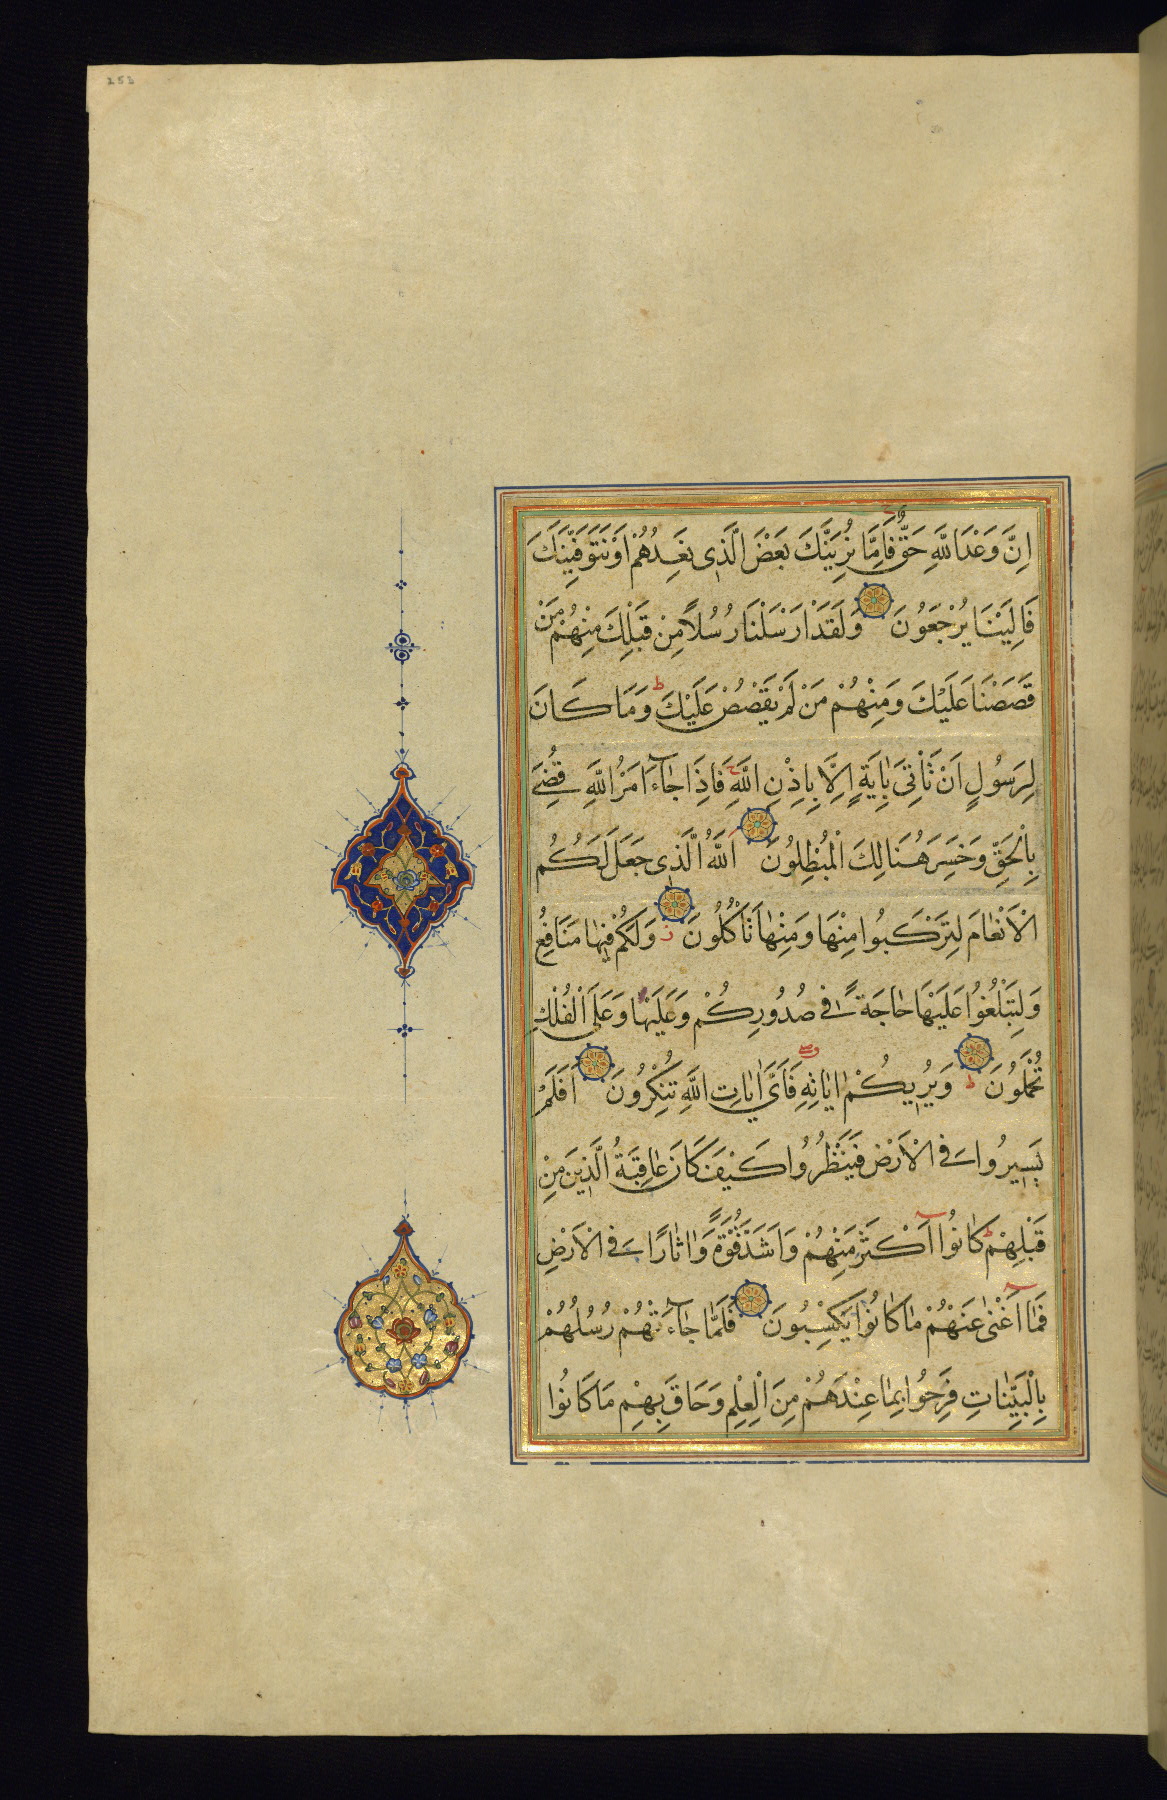 252
اِنَّ وَعْدَ اللَّهِ حَقٌّ فَاِمَّا نُرِيَنَّكَ بَعْضَ الَّذِى نَعِدُهُمْ اَوْ نَتَوَفَّيَنَّكَ
فَاِلَيْنَا يُرْجَعُونَ وَلَقَدْ اَرْسَلْنَا رُسُلًا مِنْ قَبْلِكَ مِنْهُمْ مَنْ
قَصَصْنَا عَلَيْكَ وَمِنْهُمْ مَنْ لَمْ نَقْصُصْ عَلَيْكَ ط وَمَا كَانَ
لِرَسُولٍ اَنْ يَأْتِىَ بِاٰيَةٍ اِلَّا بِاِذْنِ اللَّهِ ج فَاِذَا جَاءَ اَمْرُ اللَّهِ قُضِىَ
بِالْحَقِّ وَخَسِرَ هُنَالِكَ الْمُبْطِلُونَ اَللَّهُ الَّذِى جَعَلَ لَكُمُ
الْاَنْعَامَ لِتَرْكَبُوا مِنْهَا وَمِنْهَا تَأْكُلُونَ ز وَلَكُمْ فِيهَا مَنَافِعُ
وَلِتَبْلُغُوا عَلَيْهَا حَاجَةً فِى صُدُورِكُمْ وَعَلَيْهَا وَعَلَى الْفُلْكِ
تُحْمَلُونَ ط وَيُرِيكُمْ اٰيَاتِهِ فَاَىَّ اٰيَاتِ اللَّهِ تُنْكِرُونَ اَفَلَمْ
يَسِيرُوا فِى الْاَرْضِ فَيَنْظُرُوا كَيْفَ كَانَ عَاقِبَةُ الَّذِينَ مِنْ
قَبْلِهِمْ ط كَانُوا اَكْثَرَ مِنْهُمْ وَاَشَدَّ قُوَّةً وَاٰثَارًا فِى الْاَرْضِ
فَمَا اَغْنٰى عَنْهُمْ مَا كَانُوا يَكْسِبُونَ فَلَمَّا جَاءَتْهُمْ رُسُلُهُمْ
بِالْبَيِّنَاتِ فَرِحُوا بِمَا عِنْدَهُمْ مِنَ الْعِلْمِ وَحَاقَ بِهِمْ مَا كَانُوا